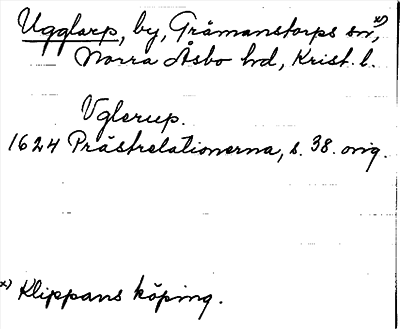 Ugglarp, by, Gråmanstorps sn, x)
Norra Åsbo hd, Krist. l.
Vglerup.
1624 Prästrelationerna, s. 38. orig.
x) Klippans köping.